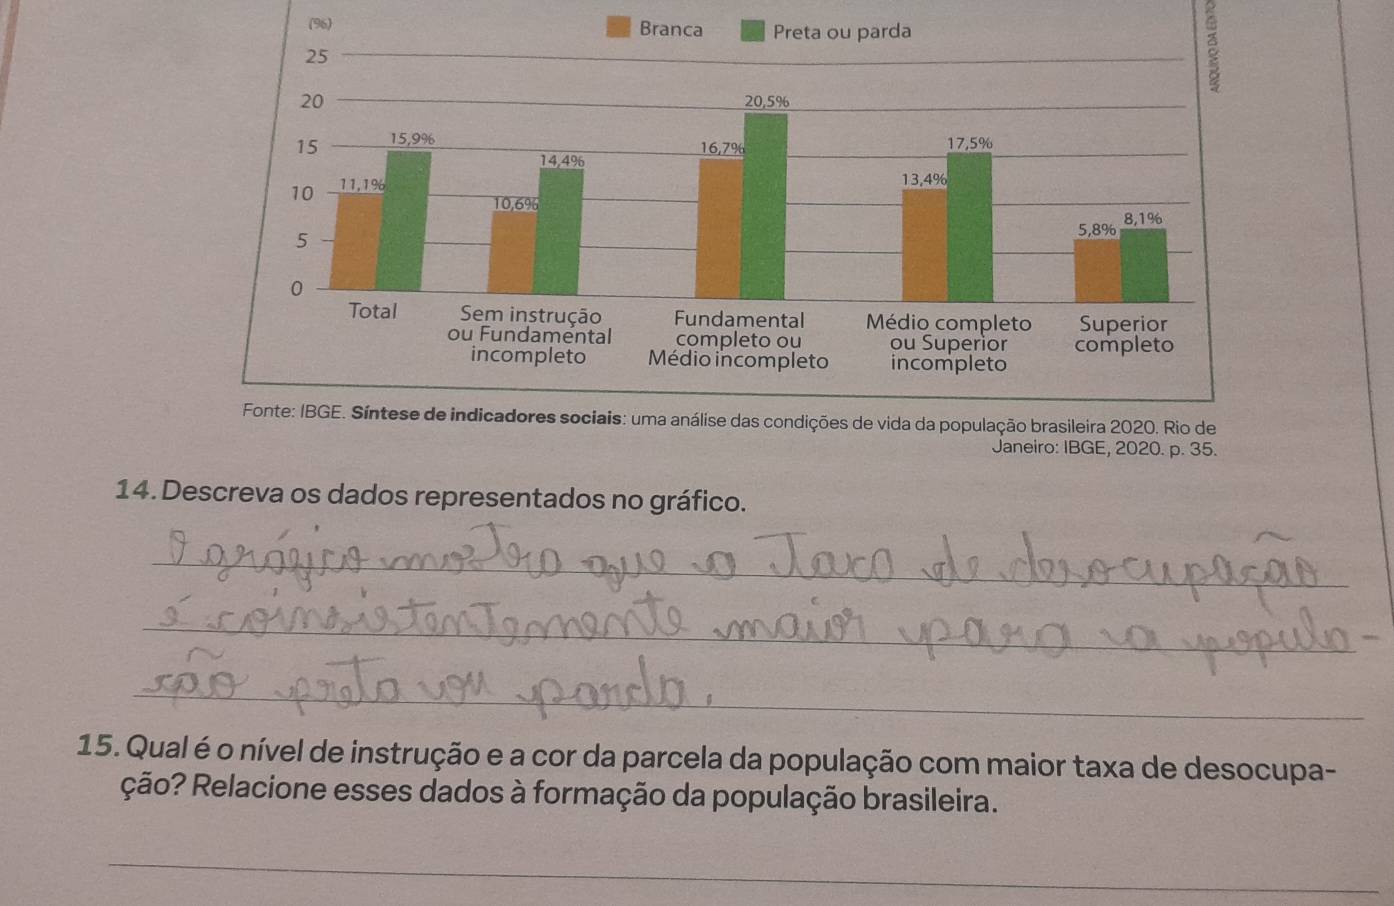 (%)
Branca Preta ou parda
25
20
15
10
5
0
11,1% 15,9%
10,6% 14,4%
16,7% 20,5%
13,4% 17,5%
5,8% 8,1%
Total
Sem instrução
ou Fundamental
incompleto
Fundamental
completo ou
Médio incompleto
Médio completo
ou Superior
incompleto
Superior
completo
ARQUIVO DA EDITO
Fonte: IBGE. Síntese de indicadores sociais: uma análise das condições de vida da população brasileira 2020. Rio de
Janeiro: IBGE, 2020. p. 35.
14. Descreva os dados representados no gráfico.
O gráfico mostra que a Taxa de desocupação
é coinsistentemente maior para a popula-
ção preta ou parda.
15. Qual é o nível de instrução e a cor da parcela da população com maior taxa de desocupa-
ção? Relacione esses dados à formação da população brasileira.